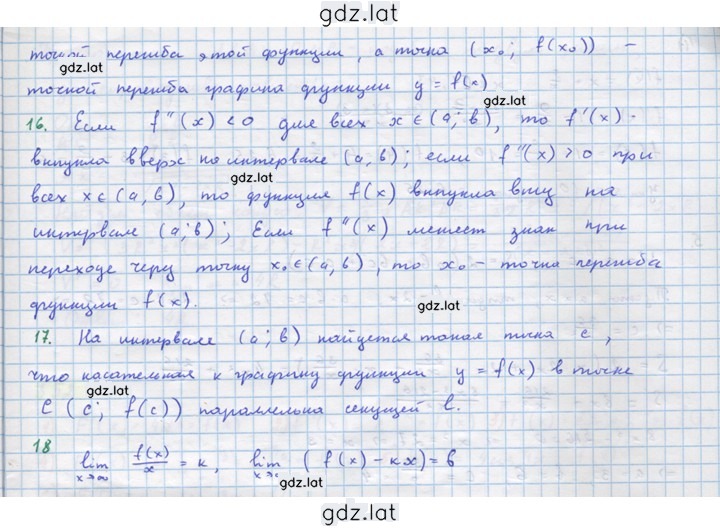 gdz.lat
точкой перегиба этой функции, а точка (x₀; f(x₀)) –
gdz.lat
точкой перегиба графика функции y = f(x)
gdz.lat
16. Если f''(x) < 0 для всех x ∈ (a; b), то f'(x) -
выпукла вверх на интервале (a, b); если f''(x) > 0 при
gdz.lat
всех x ∈ (a, b), то функция f(x) выпукла вниз на
интервале (a; b); Если f''(x) меняет знак при
переходе через точку x₀ ∈ (a, b), то x₀ – точка перегиба
функции f(x).
gdz.lat
17. На интервале (a; b) найдется такая точка c,
что касательная к графику функции y = f(x) в точке
gdz.lat
C (c; f(c)) параллельна секущей l.
18
lim x→∞ f(x)/x = k, lim x→∞ (f(x) – kx) = b
gdz.lat
gdz.lat